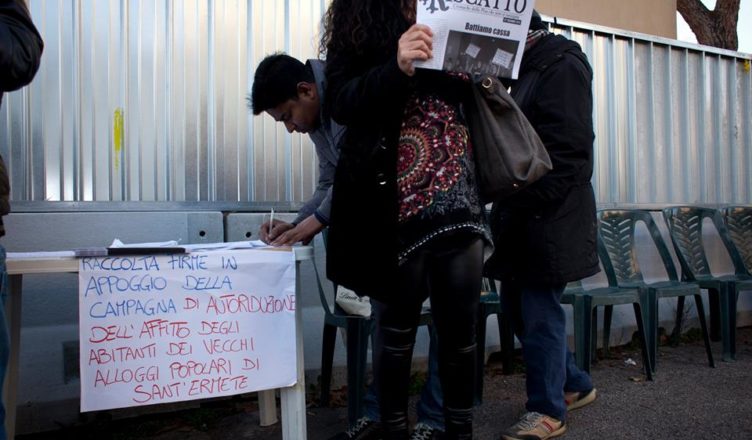 RISCATTO
Battiamo cassa
RACCOLTA FIRME IN
APPOGGIO DELLA
CAMPAGNA DI AUTORIDUZIONE
DELL'AFFITO DEGLI
ABITANTI DEI VECCHI
ALLOGGI POPOLARI DI
SANT'ERMETE